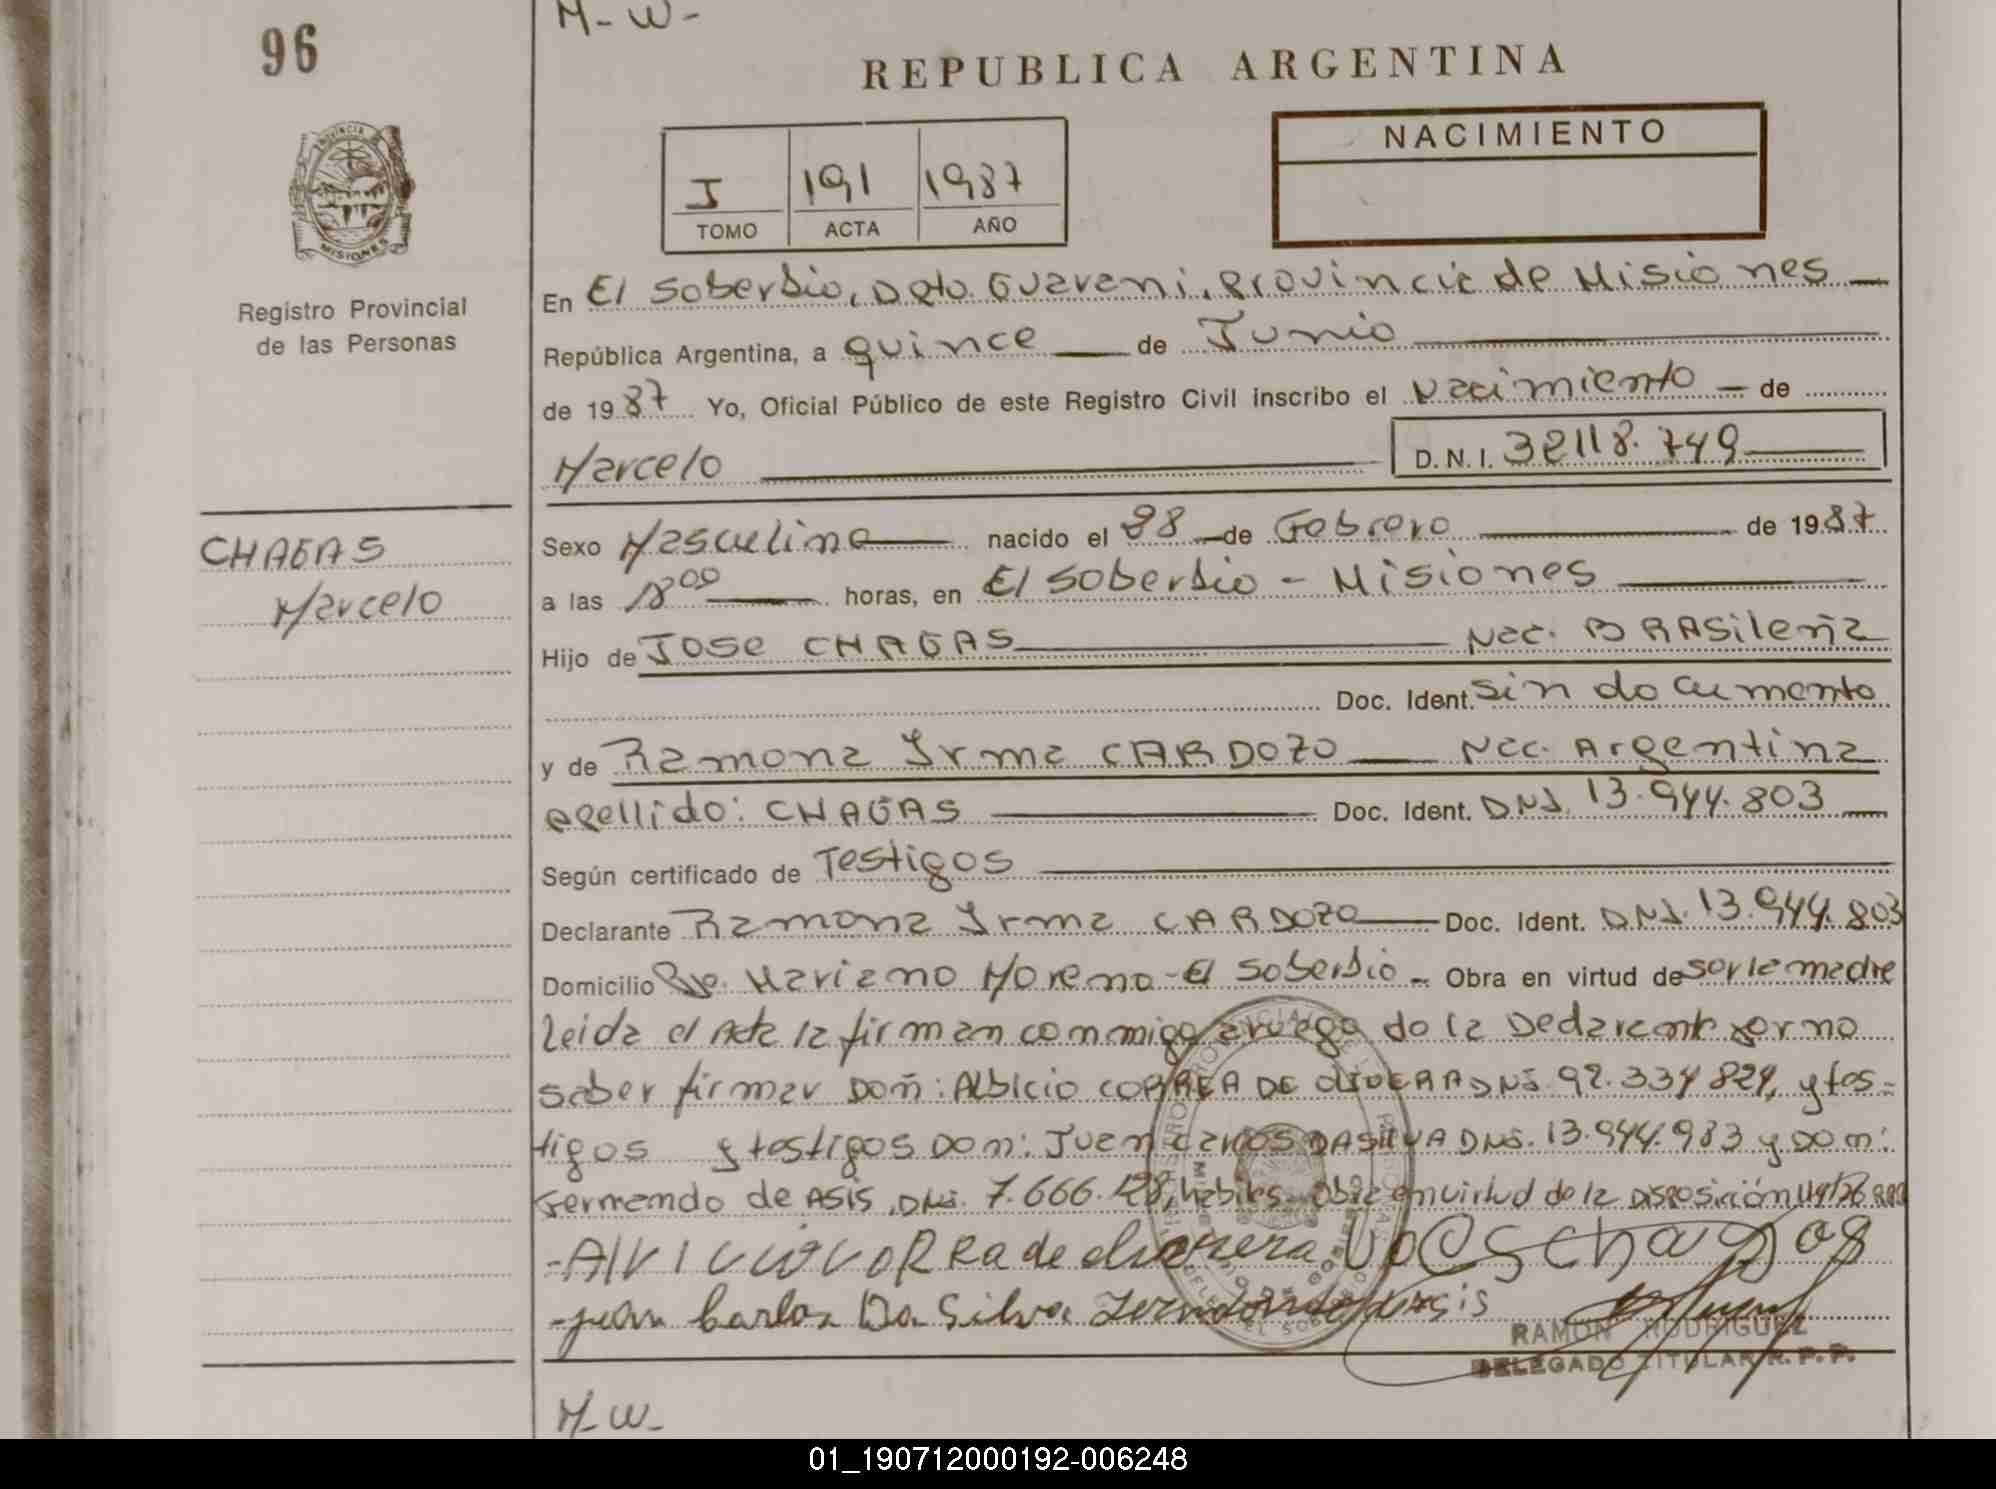 M- W-
96
REPUBLICA ARGENTINA
PROVINCIA DE
MISIONES
Registro Provincial
de las Personas
I 191 1987
TOMO ACTA AÑO
NACIMIENTO
En El Soberbio, Dpto. Guarani, provincia de Misiones
República Argentina, a quince de Junio
de 1987 Yo, Oficial Público de este Registro Civil inscribo el Nacimiento de
Marcelo D.N.I. 32118.749
CHAGAS
Marcelo
Sexo Masculino nacido el 28 de Febrero de 1987
a las 18 00 horas, en El Soberbio - Misiones
Hijo de JOSE CHAGAS Nac. BRASileña
Doc. Ident. sin documento
y de Ramona Irma CARDOZO Nac. Argentina
apellido: CHAGAS Doc. Ident. DNI. 13.944.803
Según certificado de Testigos
Declarante Ramona Irma CARDOZO Doc. Ident. DNI. 13.944.803
Domicilio Mariano Moreno - El Soberbio - Obra en virtud de ser la madre
Leida el Acta la firman conmigo a ruego de la Declarante por no
saber firmar Doñ: Albicio CORREA DE OLIVERA DNI. 92.334 824, y tes-
tigos y testigos Don: Juan Carlos DA SILVA DNI. 13.944.983 y Don:
Fernando de ASIS, DNI. 7.666.128, habiles. Obra en virtud de la DISPOSICIÓN
Juan Carlos Da Silva
RAMON RODRIGUEZ
DELEGADO TITULAR R.P.P.
M- W-
01_190712000192-006248